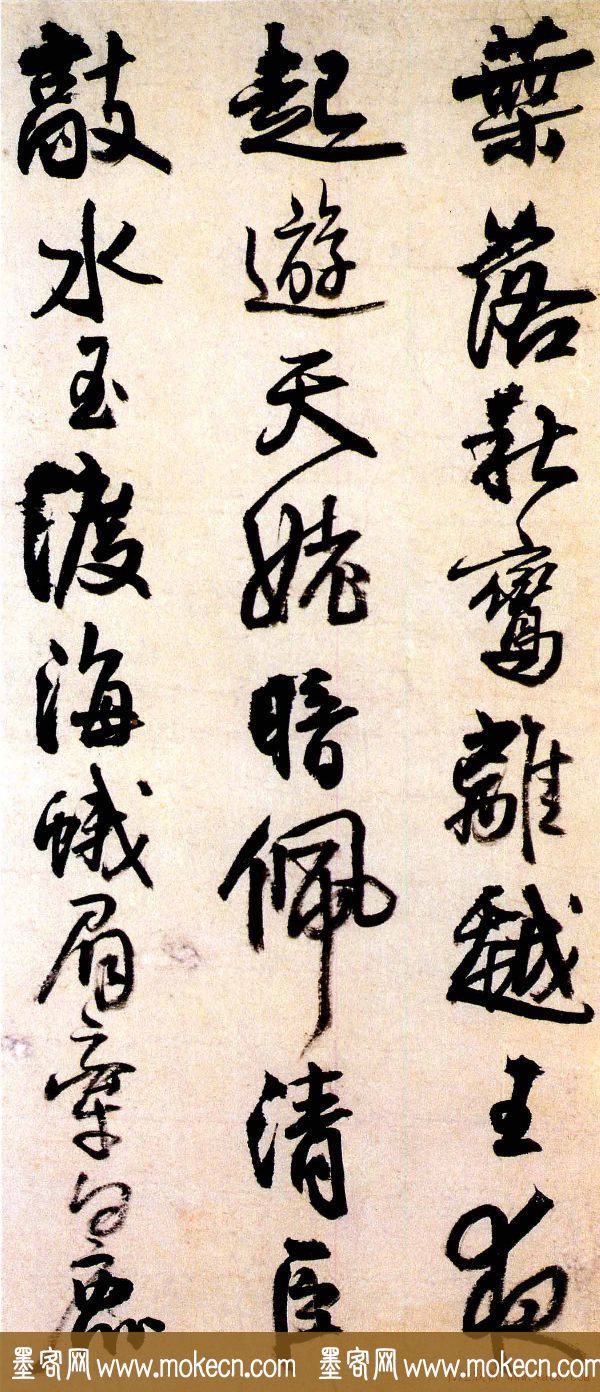 葉落秋鸞離越王夜
起遊天姥暗佩清臣
敲水玉渡海蛾眉牽白鹿
墨客网 www.mokecn.com 墨客网 www.mokecn.com